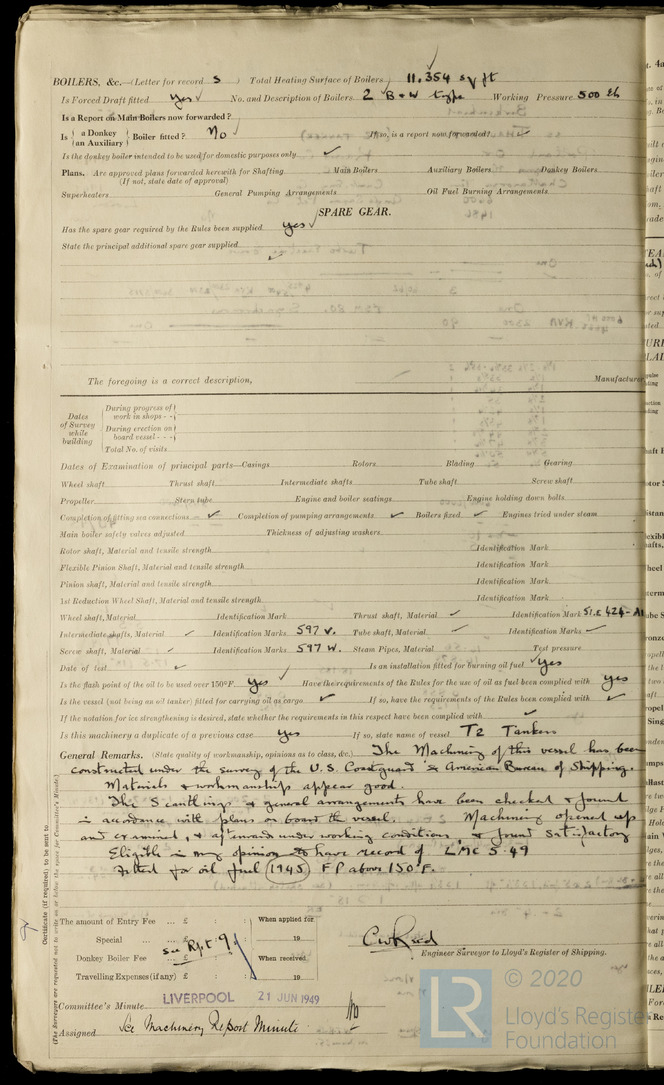 BOILERS, &c.—(Letter for record S ) Total Heating Surface of Boilers 11,354 sq ft
Is Forced Draft fitted Yes ✓ No. and Description of Boilers 2 B & W type Working Pressure 500 lb
Is a Report on Main Boilers now forwarded?
Is { a Donkey / an Auxiliary } Boiler fitted? No ✓ If so, is a report now forwarded? ✓
Is the donkey boiler intended to be used for domestic purposes only ✓
Plans. Are approved plans forwarded herewith for Shafting Main Boilers Auxiliary Boilers Donkey Boilers
(If not, state date of approval)
Superheaters General Pumping Arrangements Oil Fuel Burning Arrangements
SPARE GEAR.
Has the spare gear required by the Rules been supplied Yes ✓
State the principal additional spare gear supplied ✓
The foregoing is a correct description, Manufacturer
Dates of Survey while building
During progress of work in shops - -
During erection on board vessel - - -
Total No. of visits
Dates of Examination of principal parts—Casings Rotors Blading Gearing
Wheel shaft Thrust shaft Intermediate shafts Tube shaft Screw shaft
Propeller Stern tube Engine and boiler seatings Engine holding down bolts
Completion of fitting sea connections ✓ Completion of pumping arrangements ✓ Boilers fixed ✓ Engines tried under steam
Main boiler safety valves adjusted Thickness of adjusting washers
Rotor shaft, Material and tensile strength Identification Mark
Flexible Pinion Shaft, Material and tensile strength Identification Mark
Pinion shaft, Material and tensile strength Identification Mark
1st Reduction Wheel Shaft, Material and tensile strength Identification Mark
Wheel shaft, Material Identification Mark Thrust shaft, Material ✓ Identification Mark 51.E 424-A1
Intermediate shafts, Material ✓ Identification Marks 597 V. Tube shaft, Material ✓ Identification Marks ✓
Screw shaft, Material ✓ Identification Marks 597 W. Steam Pipes, Material ✓ Test pressure
Date of test ✓ Is an installation fitted for burning oil fuel ✓ Yes
Is the flash point of the oil to be used over 150°F. Yes ✓ Have the requirements of the Rules for the use of oil as fuel been complied with Yes
Is the vessel (not being an oil tanker) fitted for carrying oil as cargo ✓ If so, have the requirements of the Rules been complied with ✓
If the notation for ice strengthening is desired, state whether the requirements in this respect have been complied with ✓
Is this machinery a duplicate of a previous case Yes If so, state name of vessel T2 Tankers
General Remarks. (State quality of workmanship, opinions as to class, &c.) The Machinery of this vessel has been
constructed under the survey of the U.S. Coastguard & American Bureau of Shipping.
Materials & workmanships appear good.
The Scantlings & general arrangements have been checked & found
in accordance with plans on board the vessel. Machinery opened up
and examined, & afterwards under working conditions & found satisfactory
Eligible in my opinion to have record of LMC 5.49
Fitted for oil fuel (1945) F P above 150°F.
Certificate (if required) to be sent to
(The Surveyors are requested not to write on or below the space for Committee's Minute.)
The amount of Entry Fee ... £ : : When applied for
Special ... £ : 19
see Rpt 9
Donkey Boiler Fee ... £ : : When received
Travelling Expenses (if any) £ : : 19
Engineer Surveyor to Lloyd's Register of Shipping.
Committee's Minute LIVERPOOL 21 JUN 1949
Assigned See Machinery Report Minute
LR
© 2020
Lloyd's Register
Foundation